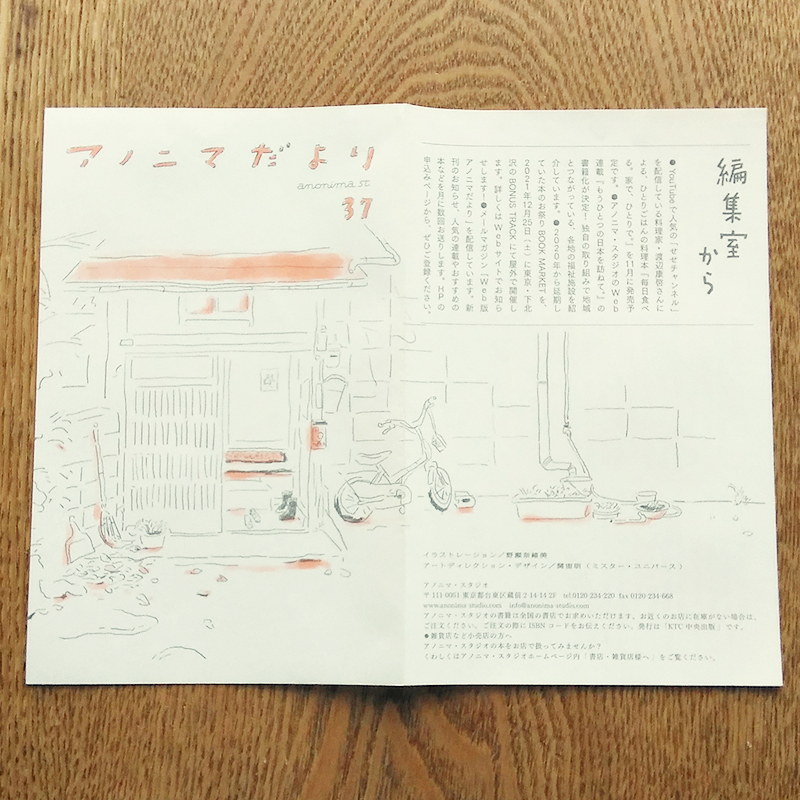 アノニマだより
anonima st.
37
編集室
から
●YouTubeで人気の『せせチャンネル』
を配信している料理家・渡辺康啓さんに
よる、ひとりごはんの料理本『毎日食べ
る。家で、ひとりで。』を11月に発売予
定です。●アノニマ・スタジオのWeb
連載『もうひとつの日本を訪ねて。』の
書籍化が決定！独自の取り組みで地域
とつながっている、各地の福祉施設を紹
介しています。●2020年から延期し
ていた本のお祭りBOOK MARKETを、
2021年12月25日（土）に東京・下北
沢のBONUS TRACKにて屋外で開催し
ます。詳しくはWebサイトでお知ら
せします！●メールマガジン『Web版
アノニマだより』を配信しています。新
刊のお知らせ、人気の連載やおすすめの
本などを月に数回お送りします。HPの
申込みページから、ぜひご登録ください。
イラストレーション／野瀬奈緒美
アートディレクション・デザイン／関宙明（ミスター・ユニバース）
アノニマ・スタジオ
〒111-0051 東京都台東区蔵前2-14-14 2F tel.0120-234-220 fax 0120-234-668
www.anonima-studio.com info@anonima-studio.com
アノニマ・スタジオの書籍は全国の書店でお求めいただけます。お近くのお店に在庫がない場合は、
ご注文ください。ご注文の際にISBNコードをお伝えください。発行は「KTC中央出版」です。
●雑貨店など小売店の方へ
アノニマ・スタジオの本をお店で扱ってみませんか？
くわしくはアノニマ・スタジオホームページ内「書店・雑貨店様へ」をご覧ください。